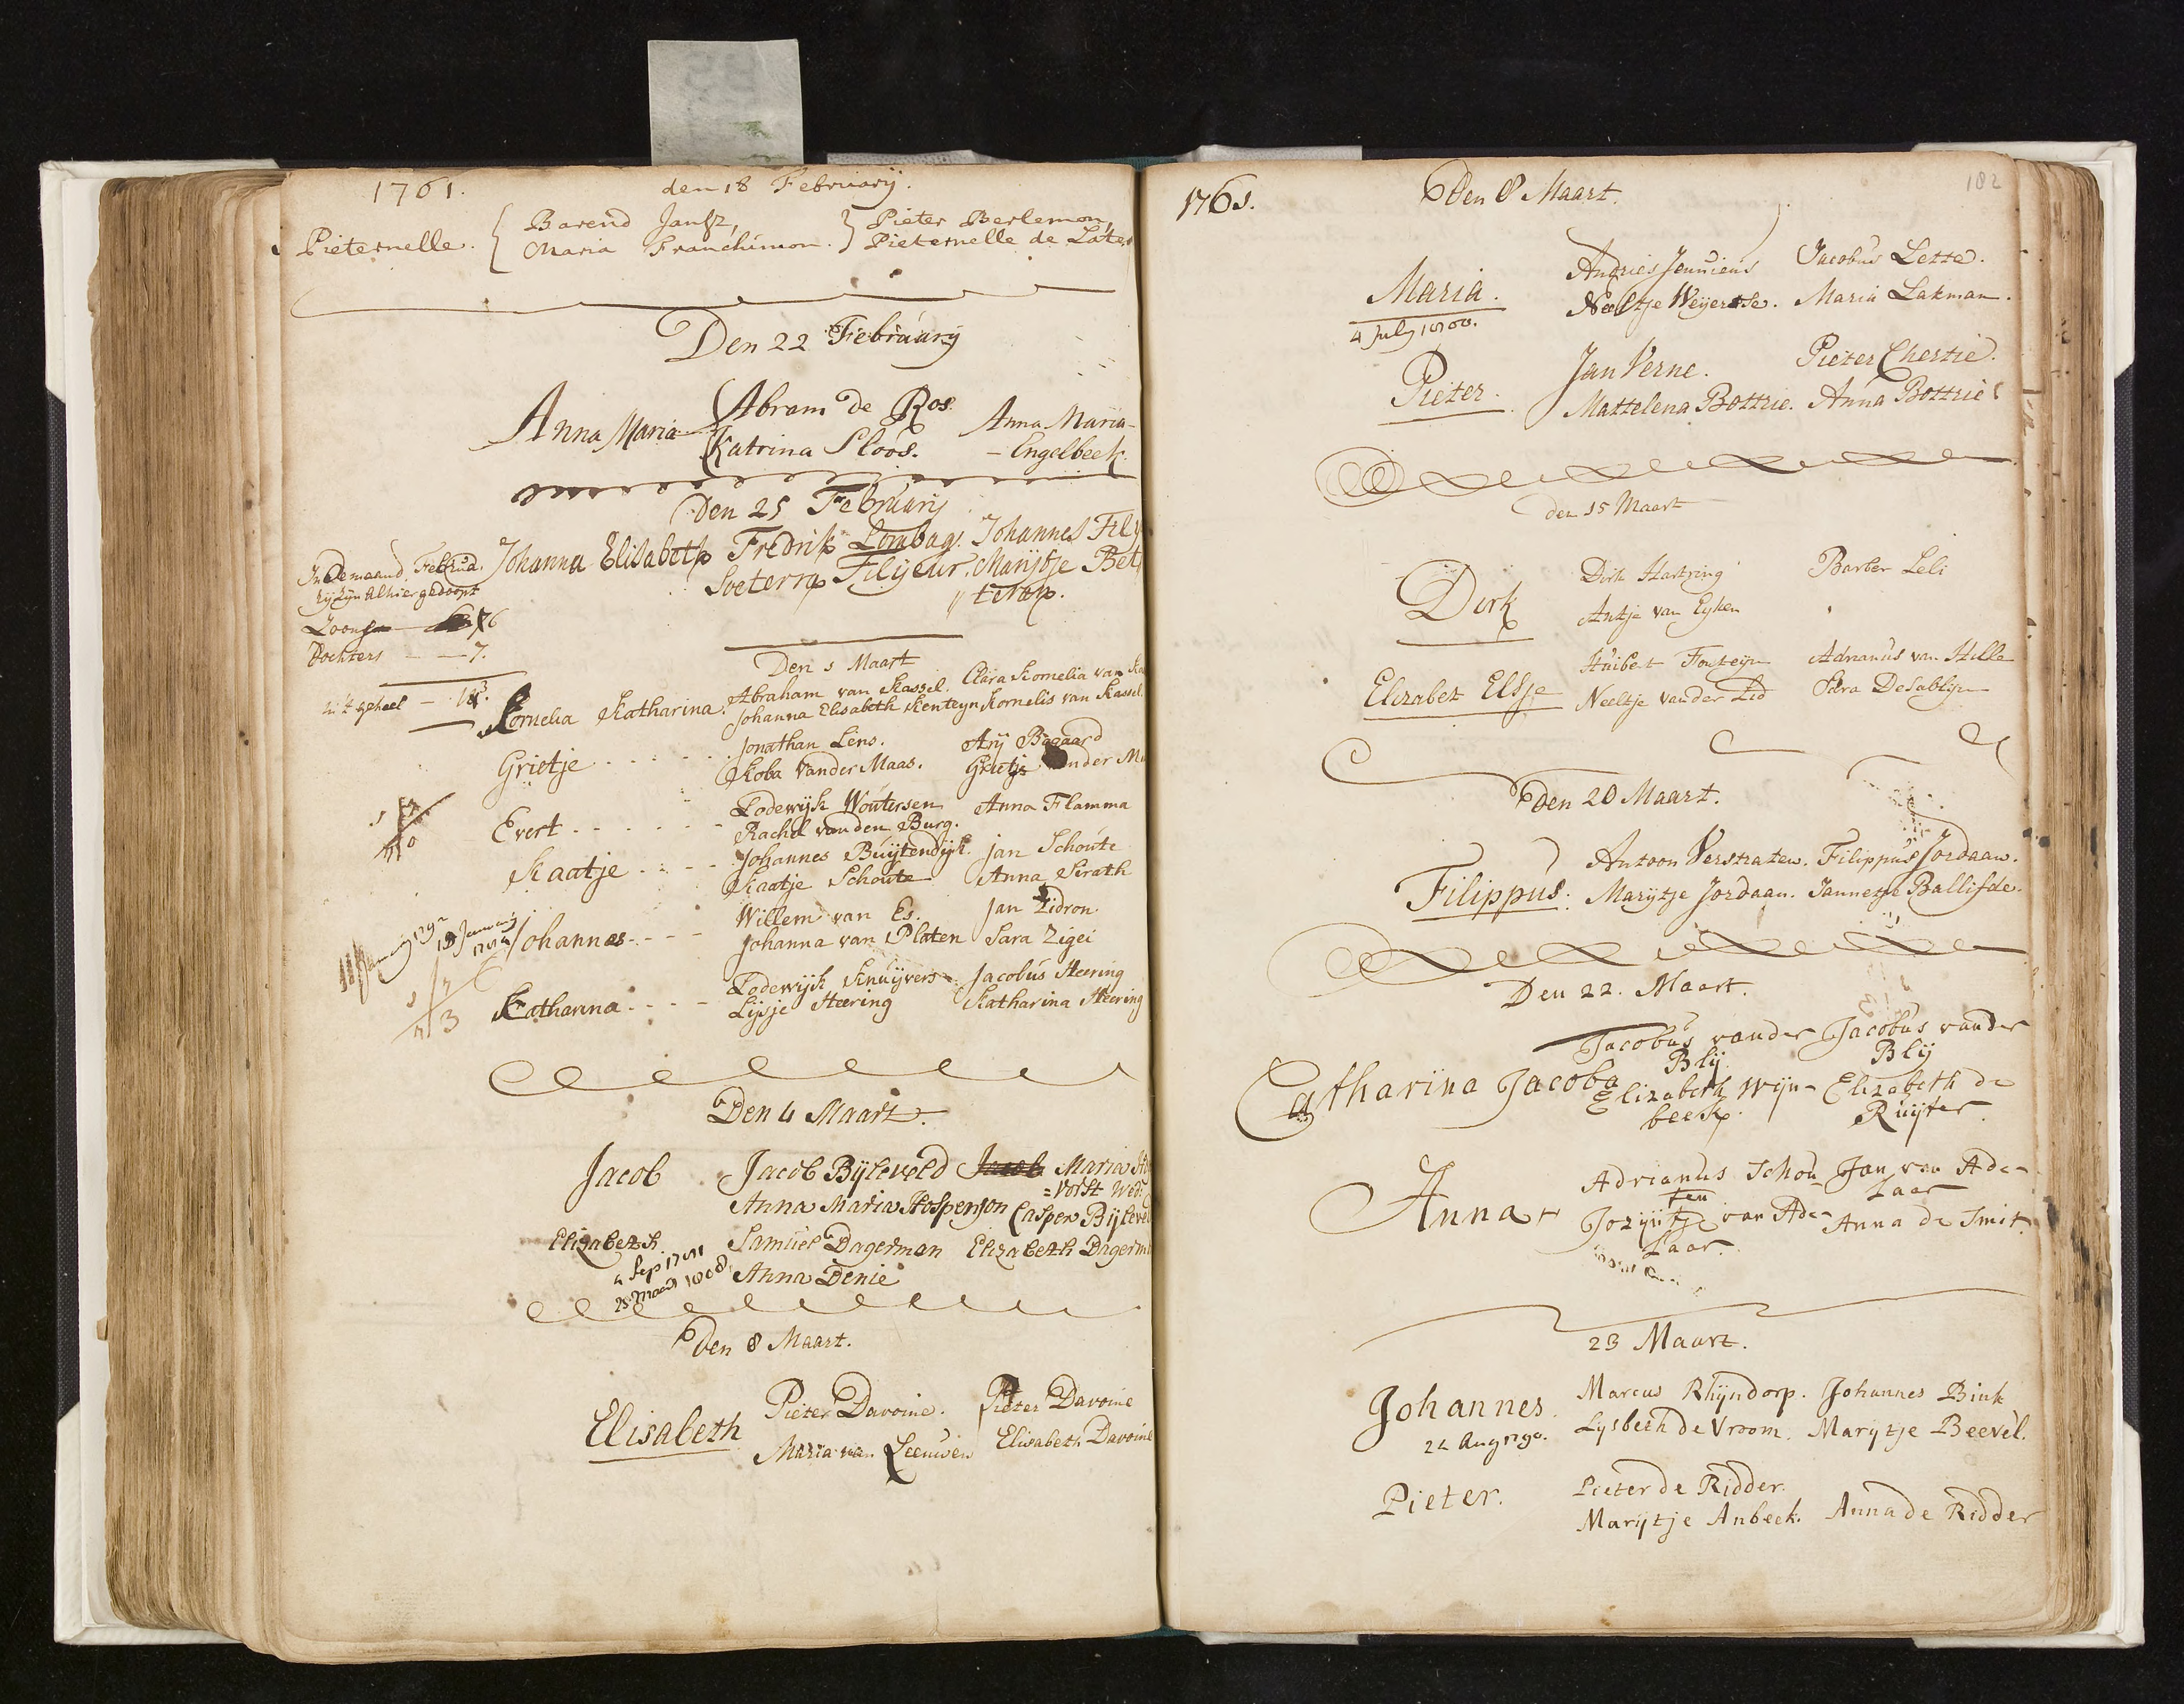 1761.
den 18 February.
Pieternelle. { Barend Jansz, } Pieter Berlemon,
Maria Franchimon. Pieternelle de Later
Den 22 February
Anna Maria Abram de Ros. Anna Maria-
Katrina Sloos. - Engelbeek.
Den 25 February
Johanna Elisabeth Fredrik Lombags. Johannes Fily
Soeterra Filijeur. Marijtje Bet
terop.
In de maand Februa.
zijn alhier gedoopt
Zoons 6
Dochters - - 7.
in 't geheel - 13.
Den 1 Maart
Kornelia Katharina. Abraham van Kassel. Clara Kornelia van Ka
Johanna Elisabeth Kenteyn Kornelis van Kassel.
Grietje . . . . . Jonathan Lens. Arij Bogaard
Koba Vander Maas. Grietje ander Ma
Evert . . . . . Lodewijk Woutersen Anna Flamma
Rachel vanden Burg.
Kaatje . . . . Johannes Buijtendijk. Jan Schoute
Kaatje Schoute Anna Sirath
Johannes - - - Willem van Es. Jan Zidron
Johanna van Platen Sara Zigei
Katharina - - - Lodewijk Knuijvers Jacobus Heering
Lijsje Heering Katharina Heering
Den 4 Maart.
Jacob Jacob Bijleveld Maria
= Vorst Wed.
Anna Maria Hospenson Casper Bijlevel
Elizabeth. Samuel Dagerman Elizabeth Dagerm
Anna Denie
4 Sep
25 Maart 1808
Den 8 Maart.
Elisabeth Pieter Davoine. Pieter Davoine
Maria van Leeuwen Elisabeth Davoine
1761.
Den 8 Maart.
182
Maria. Andries Jenniens Jacobus Lette.
Neeltje Weijertse. Maria Lakman.
4 July
Pieter. Jan Verne. Pieter Chertie.
Mattelena Bottrie. Anna Bottrie
den 15 Maart
Dirk Dirk Hartring Barber Leli
Antje van Eyken
Elizabet Elsje Huibert Fonteijn Adrianus van Hille
Neeltje vander Lid Sara Desablijn
Den 20 Maart.
Filippus. Antoon Verstraten. Filippus Jordaan.
Marijtje Jordaan. Jannetje Ballifde.
Den 22. Maart.
Catharina Jacoba Jacobus vander Jacobus vander
Blij Blij
Elizabeth Wijn- Elizabeth de
beek. Ruijter.
Anna Adrianus Schou- Jan van Ade-
ten laar
Jozijntje van Ade- Anna de Smit.
laar.
23 Maart.
Johannes. Marcus Rhijndorp. Johannes Bink
Lysbeth de Vroom. Marijtje Beevel.
22 Aug 1790.
Pieter. Pieter de Ridder.
Marijtje Anbeek. Anna de Ridder